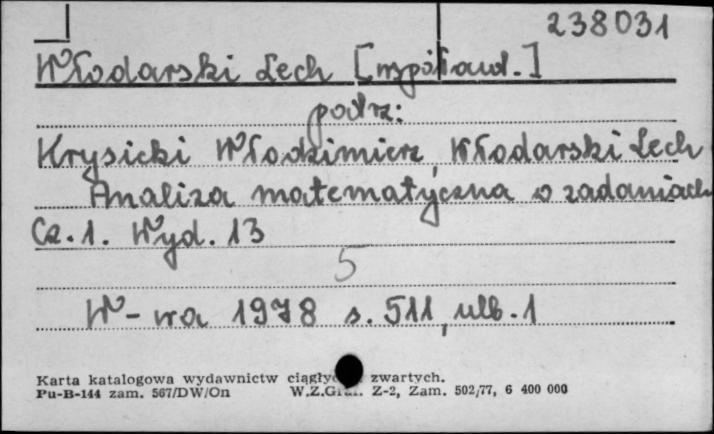 238031
Włodarski Lech [współaut.]
patrz:
Krysicki Włodzimierz, Włodarski Lech
Analiza matematyczna w zadaniach
Cz. 1. Wyd. 13
5
W-wa 1978 s. 511, nlb. 1
Karta katalogowa wydawnictw zwartych.
Pu-B-144 zam. 567/DW/On W.Z.Graf. Z-2, Zam. 502/77, 6 400 000